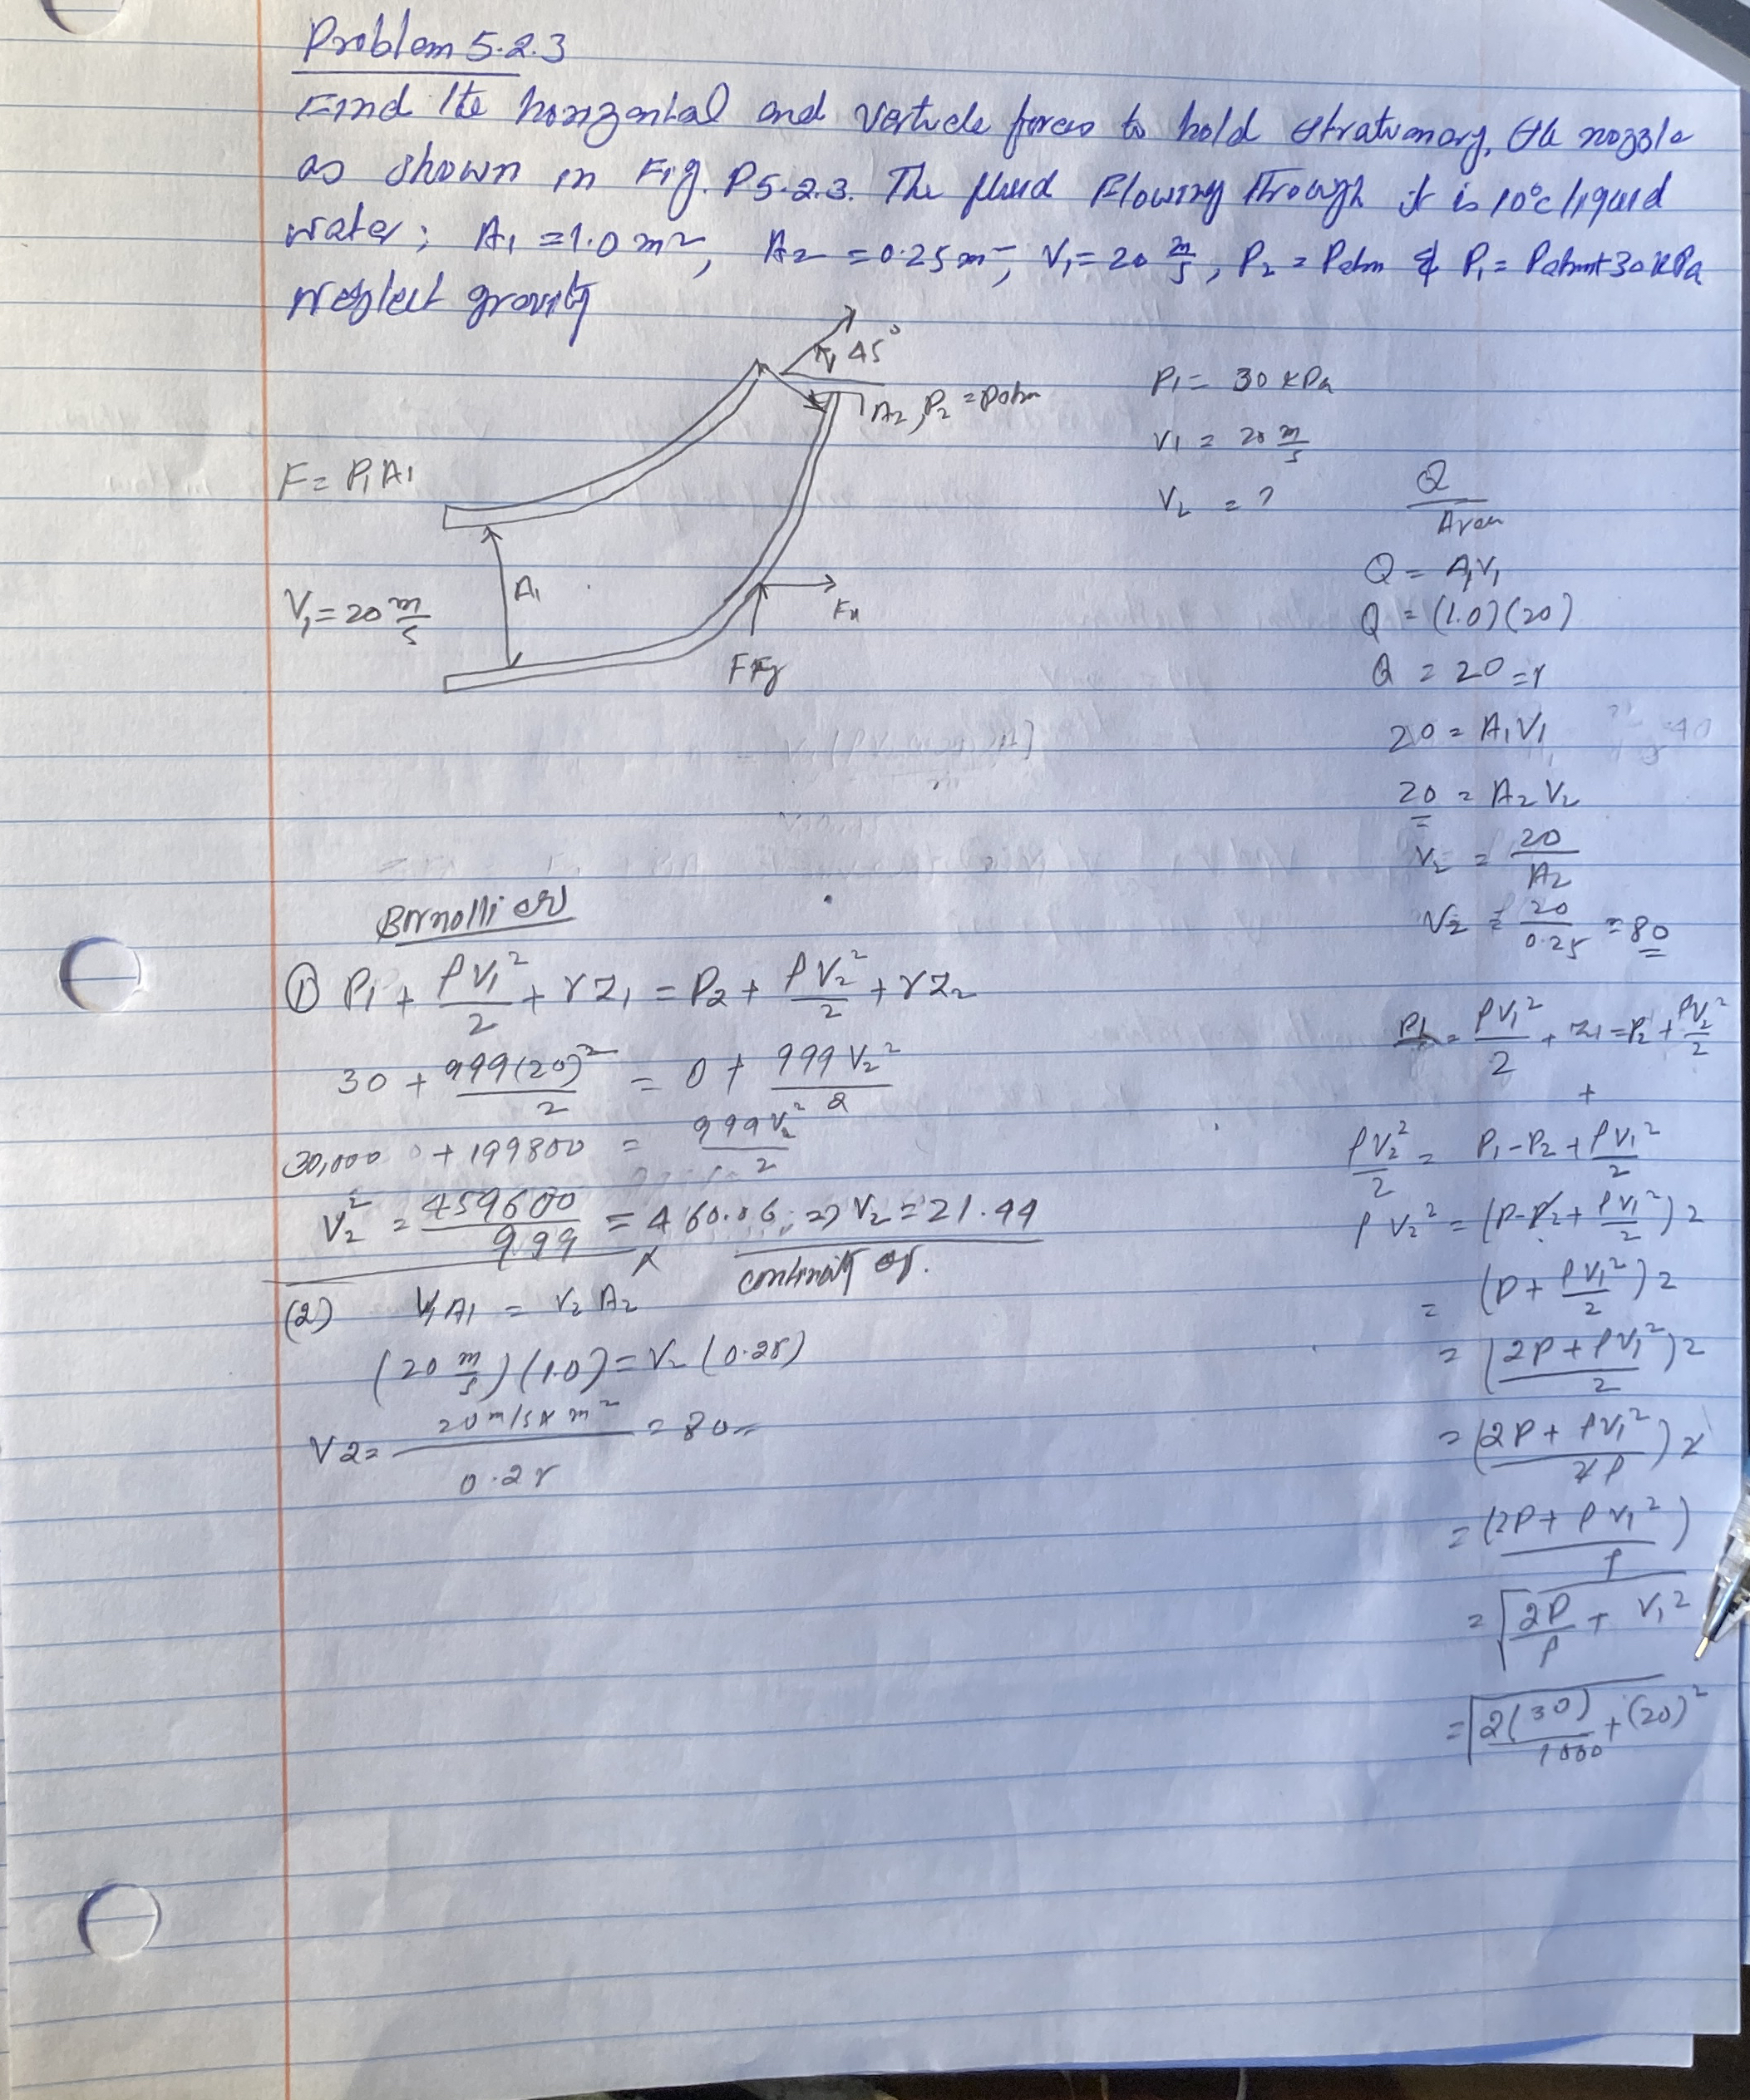 Problem 5.2.3
Find the horizontal and verticle forces to hold stratuonary, the nozzle
as shown in Fig. P5.2.3. The fluid Flowing Through it is 10°c liquid
water; A₁ = 1.0 m², A₂ = 0.25 m², V₁ = 20 m/s, P₂ = Patm & P₁ = Patm+30 kPa
Neglect gravity
45°
A₂, P₂ = Patm
F = P₁A₁
V₁ = 20 m/s
A₁
Fx
Fy
P₁ = 30 kPa
V₁ = 20 m/s
V₂ = ?
Q/Area
Q = A₁V₁
Q = (1.0)(20)
Q = 20
20 = A₁V₁
20 = A₂V₂
V₂ = 20/A₂
V₂ = 20/0.25 = 80
Bernolli
① P₁ + ρV₁²/2 + γZ₁ = P₂ + ρV₂²/2 + γZ₂
30 + 999(20)²/2 = 0 + 999V₂²/2
30,000 + 199800 = 999V₂²/2
V₂² = 459600/999 = 460.06 => V₂ = 21.44
continuity
(2) V₁A₁ = V₂A₂
(20 m/s)(1.0) = V₂(0.25)
V2 = 20 m/s x m²/0.25 = 80
P₁ = ρV₁²/2 + Z₁ = P₂ + ρV₂²/2
+
ρV₂²/2 = P₁-P₂ + ρV₁²/2
ρV₂² = (P-P₂ + ρV₁²/2)2
= (P + ρV₁²/2)2
= (2P + ρV₁²/2)2
= (2P + ρV₁²/2ρ)2
= (2P + ρV₁²)/ρ
= √(2P/ρ + V₁²)
= √(2(30)/1000 + (20)²)